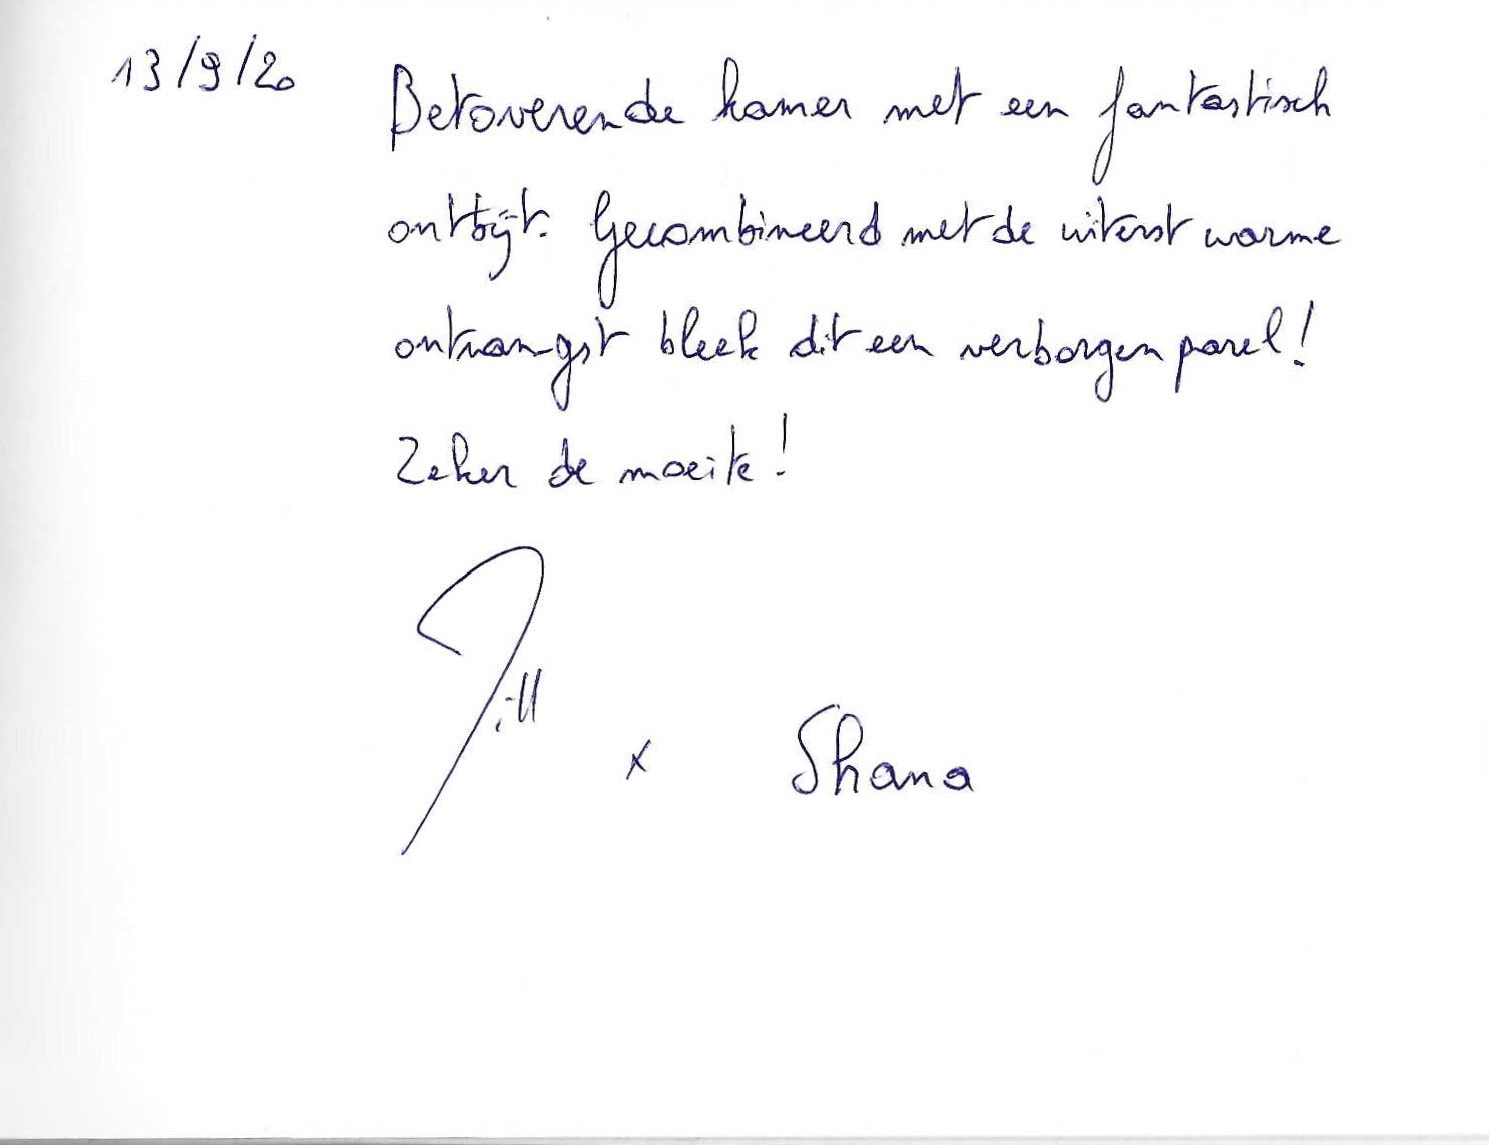 13/9/20 Betoverende kamer met een fantastisch
ontbijt. Gecombineerd met de uiterst warme
ontvangst bleek dit een verborgen parel!
Zeker de moeite!
Jill x Shana